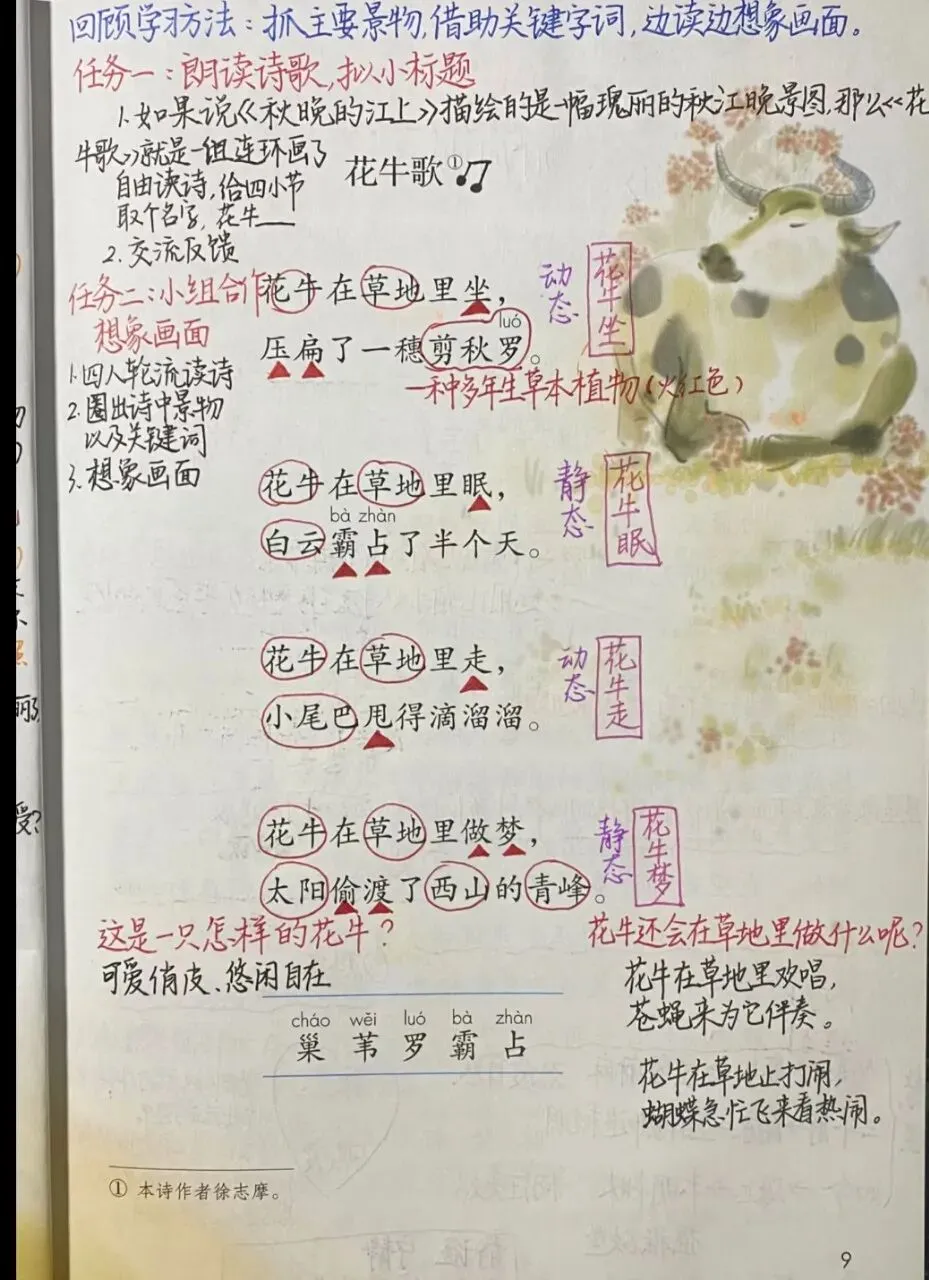 回顾学习方法：抓主要景物,借助关键字词,边读边想象画面。
任务一：朗读诗歌,拟小标题
1.如果说《秋晚的江上》描绘的是一幅瑰丽的秋江晚景图,那么《花
牛歌》就是一组连环画了
自由读诗,给四小节
取个名字,花牛___
2.交流反馈
花牛歌①
任务二：小组合作
想象画面
1.四人轮流读诗
2.圈出诗中景物
以及关键词
3.想象画面
花牛在草地里坐，
luó
压扁了一穗剪秋罗。
动态
花牛坐
一种多年生草本植物(火红色)
花牛在草地里眠，
bà zhàn
白云霸占了半个天。
静态
花牛眠
花牛在草地里走，
小尾巴甩得滴溜溜。
动态
花牛走
花牛在草地里做梦，
太阳偷渡了西山的青峰。
静态
花牛梦
这是一只怎样的花牛？
可爱俏皮、悠闲自在
花牛还会在草地里做什么呢？
花牛在草地里欢唱,
苍蝇来为它伴奏。
花牛在草地上打闹,
蝴蝶急忙飞来看热闹。
cháo wěi luó bà zhàn
巢 苇 罗 霸 占
① 本诗作者徐志摩。
9